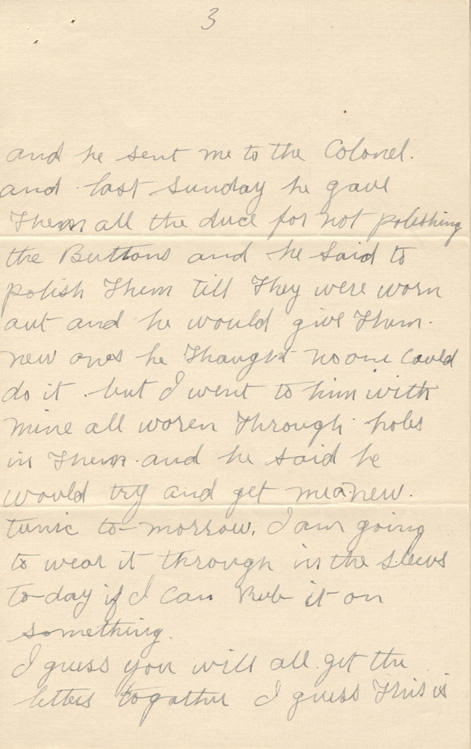 3
and he sent me to the Colonel.
and last Sunday he gave
Them all the duce for not polishing
the Buttons and he said to
polish Them till They were worn
out and he would give Them.
new ones he Thought no one Could
do it but I went to him with
mine all woren Through holes
in Them and he said he
would try and get me a new.
tunic to-morrow. I am going
to wear it through in the sleevs
to-day if I can Rub it on
something.
I guess you will all get the
letters togather I guess This is